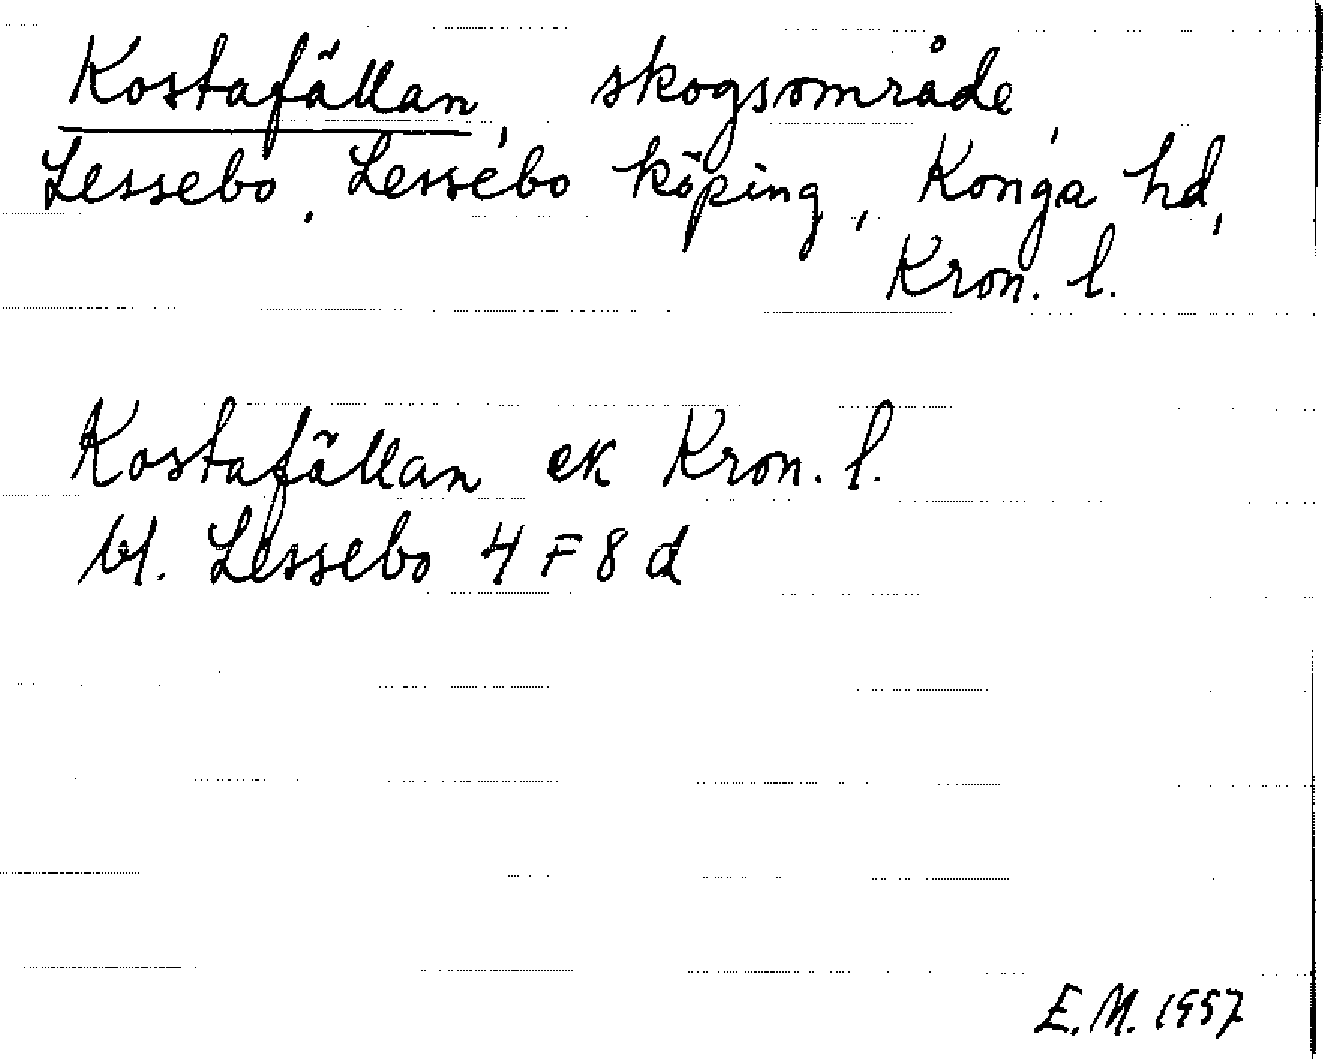 Kostafällan, skogsområde,
Lessebo, Lessebo köping, Konga hd,
Kron. l.
Kostafällan ek Kron. l.
bl. Lessebo 4 F 8 d
E.M. 1957